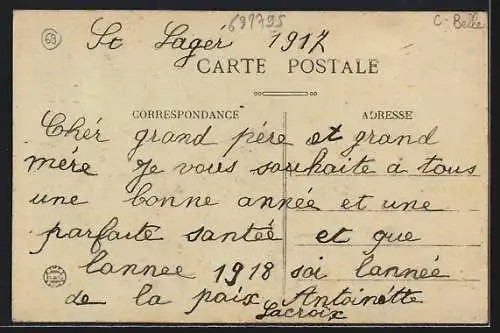 69
691795
C-Belle
St Lagér 1917
CARTE POSTALE
CORRESPONDANCE
ADRESSE
Chér grand pére et grand
mére Je vous souhaite a tous
une bonne année et une
parfaite santée et que
lannee 1918 soi lannée
de la paix Antoinétte
Lacroix